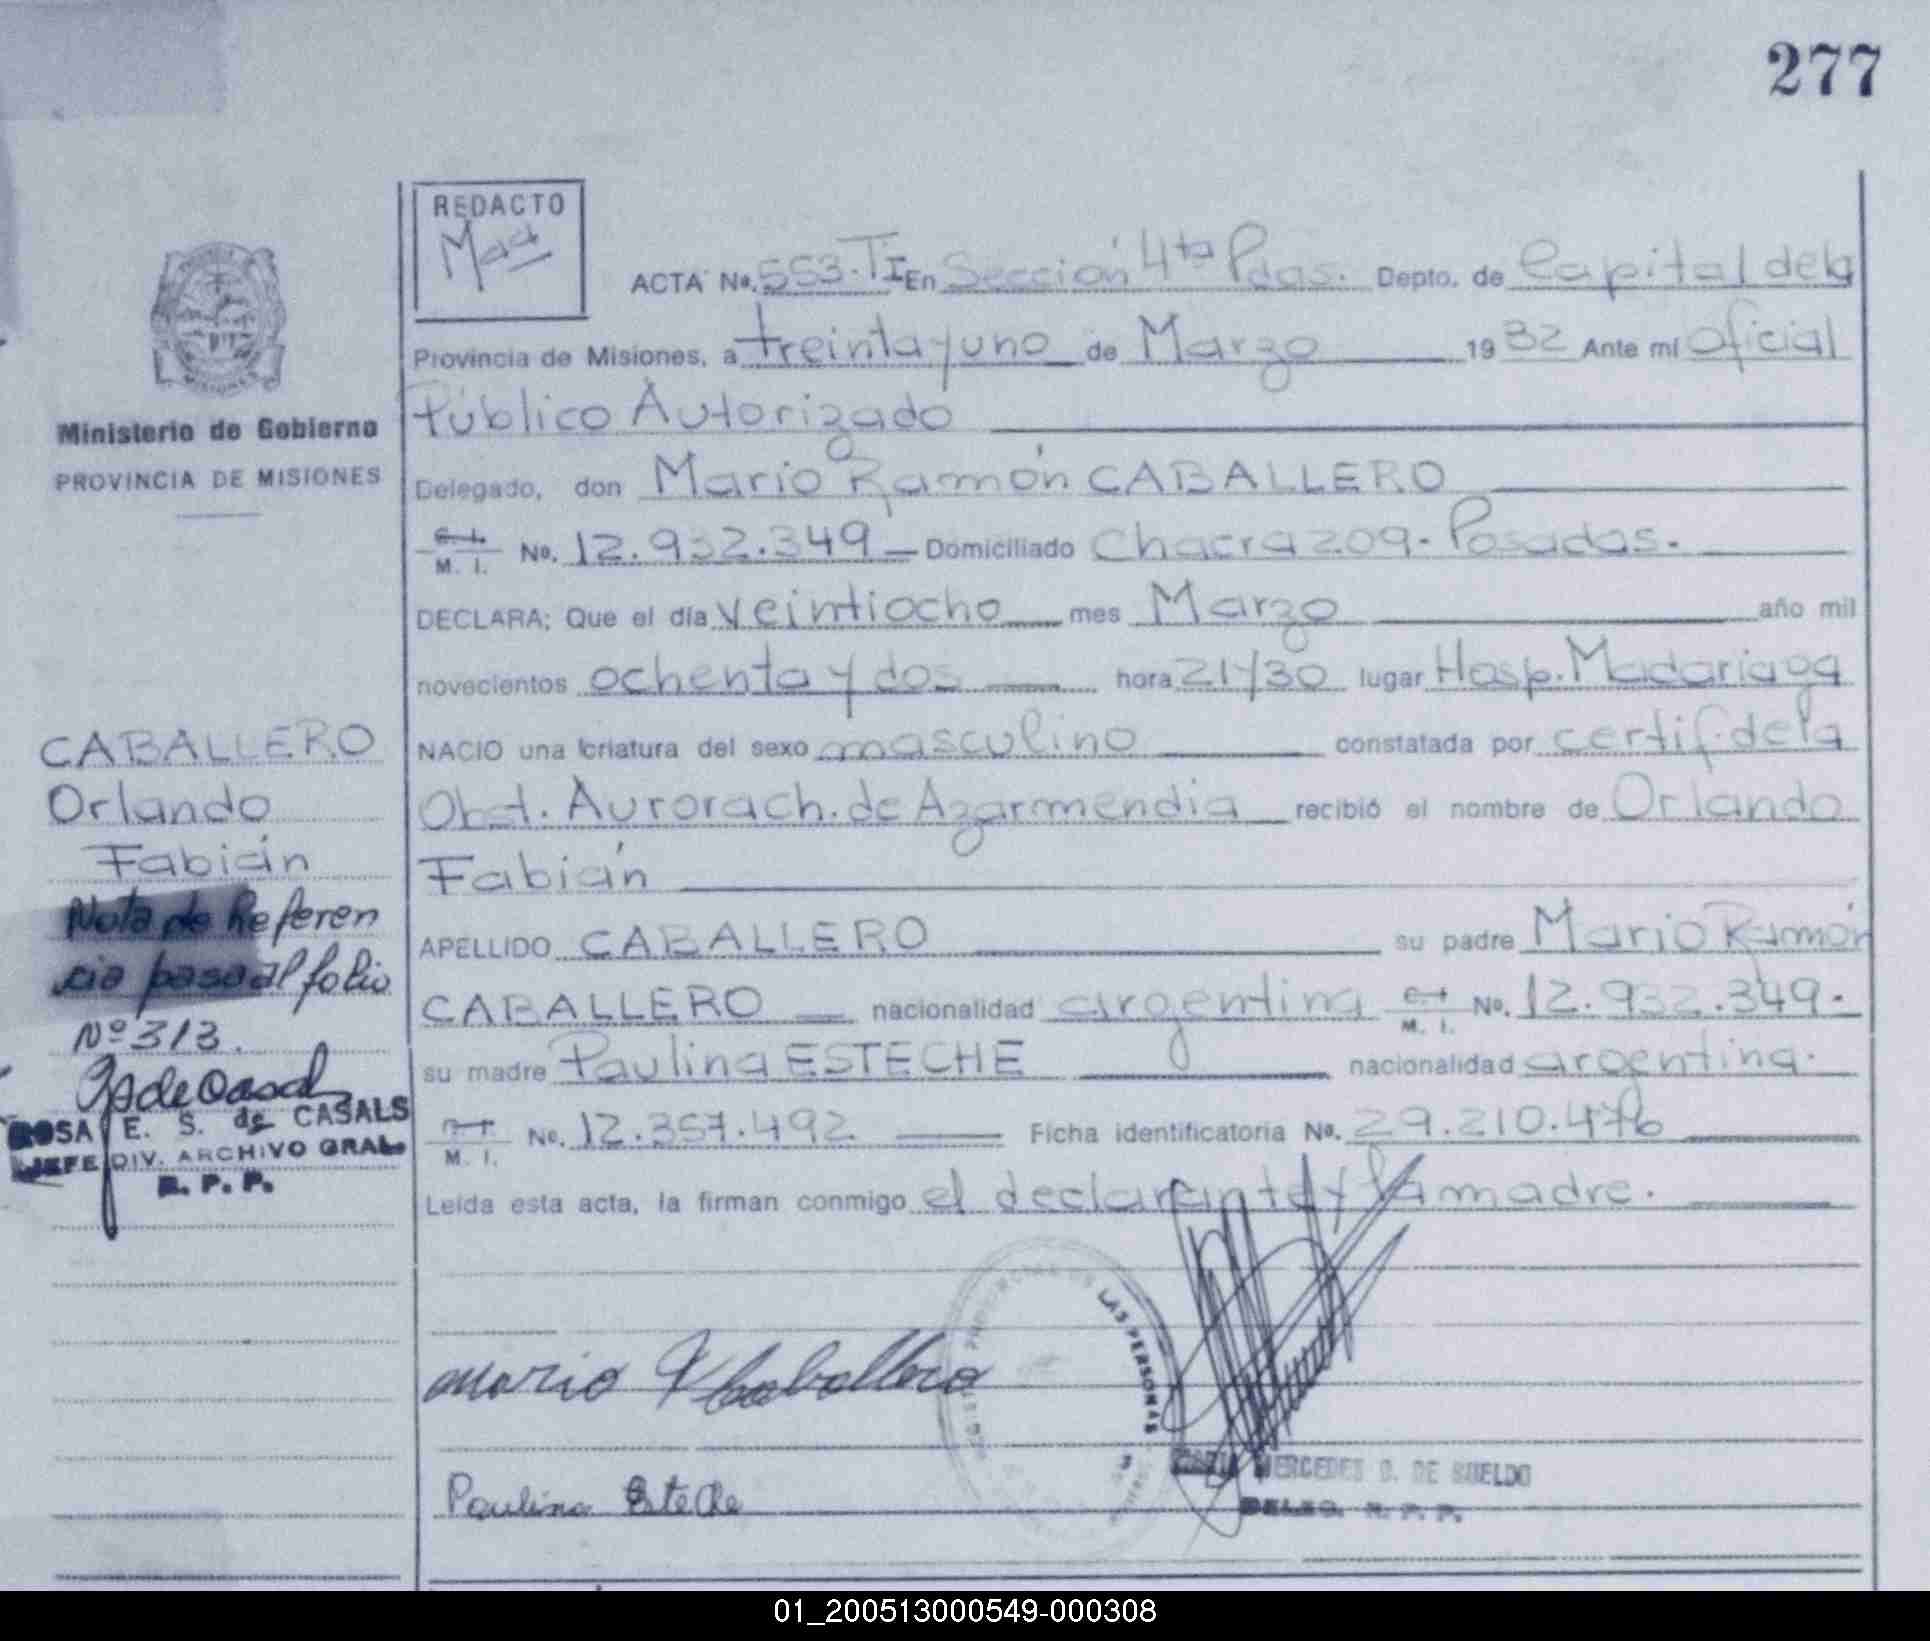 277
REDACTO
ACTA No. 553. T I En Sección 4ta Pdas. Depto. de Capital de la
Provincia de Misiones, a treinta y uno de Marzo 1982 Ante mí Oficial
Público Autorizado
Delegado, don Mario Ramón CABALLERO
M. I. No. 12.932.349 Domiciliado Chacra 209 - Posadas.
DECLARA; Que el día veintiocho mes Marzo año mil
novecientos ochenta y dos hora 21 y 30 lugar Hosp. Madariaga
NACIO una criatura del sexo masculino constatada por certif. de la
Obst. Aurora ch. de Azarmendia recibió el nombre de Orlando
Fabián
APELLIDO CABALLERO su padre Mario Ramón
CABALLERO nacionalidad argentina M. I. No. 12.932.349.
su madre Paulina ESTECHE nacionalidad argentina.
M. I. No. 12.357.492 Ficha identificatoria No. 29.210.476
Leída esta acta, la firman conmigo el declarante y la madre.
Mario R Caballero
Paulina Esteche
PROVINCIA DE
LAS PERSONAS
MERCEDES D. DE SUELDO
DELEG. R. P. P.
MISIONES
Ministerio de Gobierno
PROVINCIA DE MISIONES
CABALLERO
Orlando
Fabián
Nota de Referen
cia pasa al folio
Nº 313.
ROSA E. S. de CASALS
JEFE DIV. ARCHIVO GRAL.
R. P. P.
01_200513000549-000308